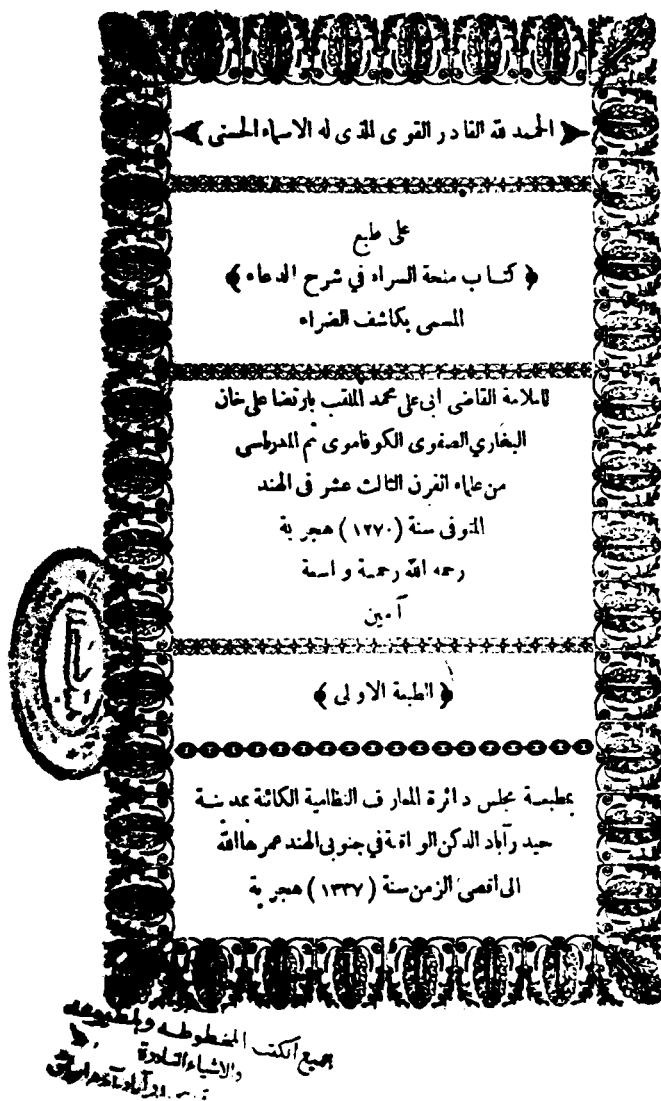 ﴿ الحمد لله القادر القوي الذي له الاسماء الحسنى ﴾
على طبع
﴿ كتاب منحة السراء في شرح الدعاء ﴾
المسمى بكاشف الضراء
للعلامة القاضى ابى على محمد الملقب بارتضا على خان
البخاري الصفوى الكوفاموى ثم المدراسى
من علماء القرن الثالث عشر فى الهند
المتوفى سنة (١٢٧٠) هجرية
رحمه الله رحمة واسعة
آمين
﴿ الطبعة الاولى ﴾
بمطبعة مجلس دائرة المعارف النظامية الكائنة بمدينة
حيدرآباد الدكن الواقعة في جنوبى الهند عمرها الله
الى أقصى الزمن سنة (١٣٣٧) هجرية
جميع الكتب المخطوطه والمطبوعه
والاشياء النادرة